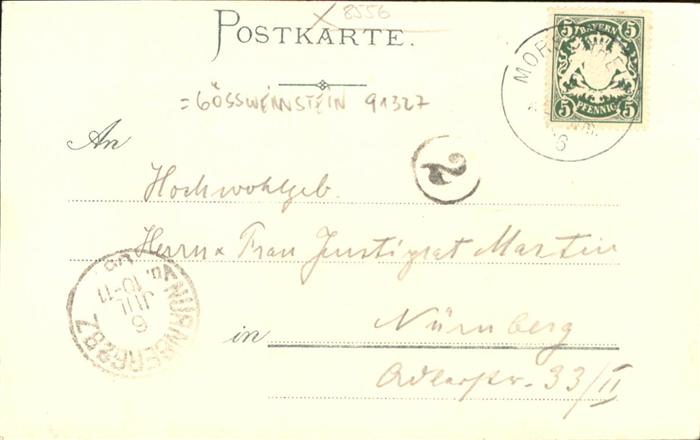 8556
POSTKARTE.
5 BAYERN 5
5 PFENNIG 5
= GÖSSWEINSTEIN 91327
An
2
Hochwohlgeb.
Herrn & Frau Justizrat Martin
in Nürnberg
Adlerstr. 33/II
NÜRNBERG 2.B.Z.
6
JUL
10-11